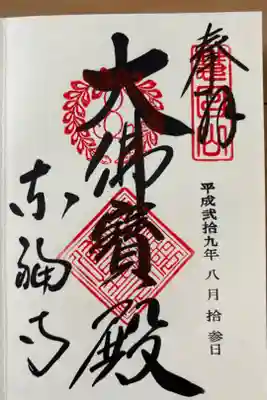 奉拝
慧日山
平成弐拾九年 八月 拾参日
大佛寶殿
東福寺